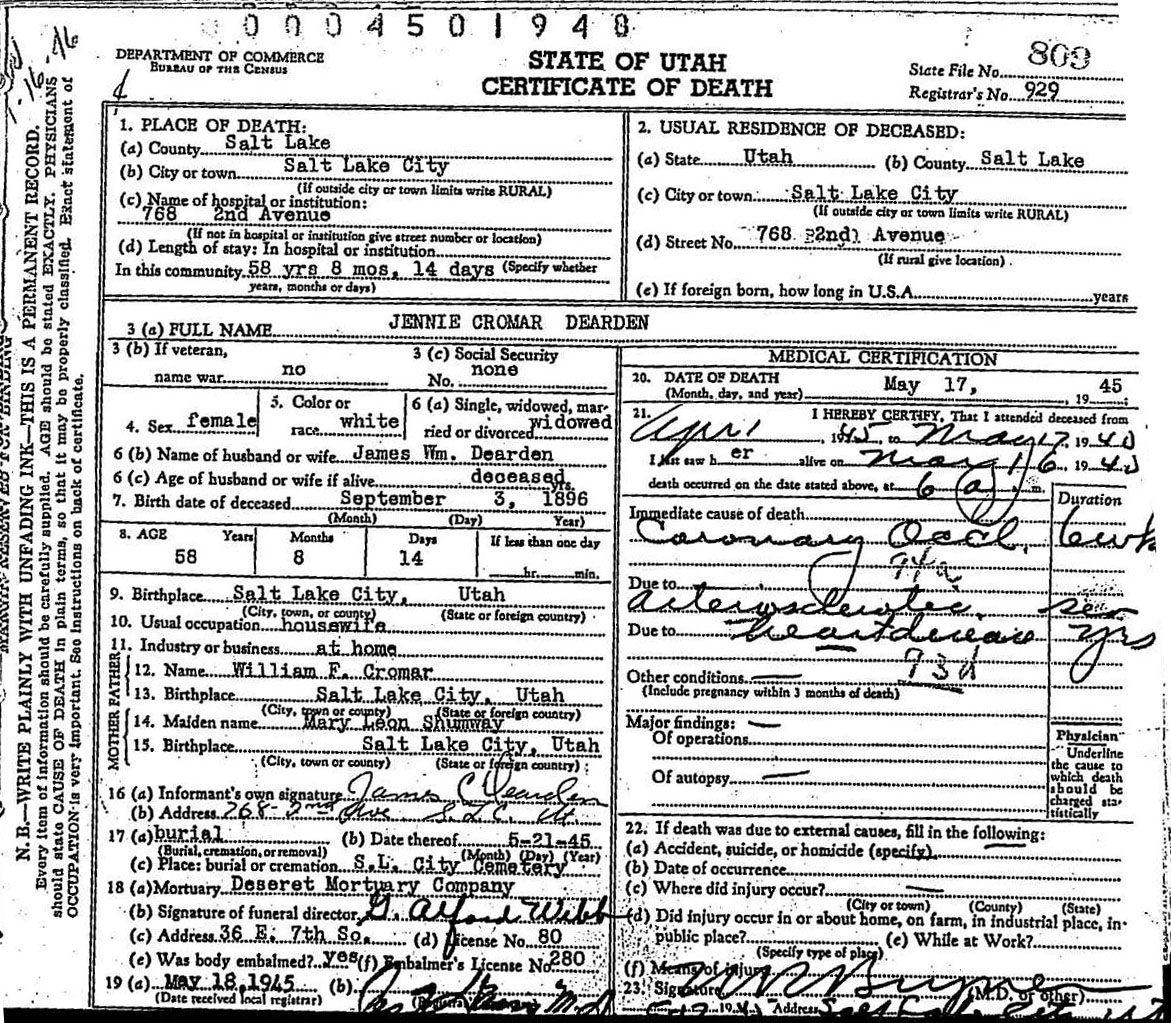 0004501948
DEPARTMENT OF COMMERCE
BUREAU OF THE CENSUS
STATE OF UTAH
CERTIFICATE OF DEATH
State File No. 809
Registrar's No. 929
N. B.—WRITE PLAINLY WITH UNFADING INK—THIS IS A PERMANENT RECORD.
Every item of information should be carefully supplied. AGE should be stated EXACTLY. PHYSICIANS
should state CAUSE OF DEATH in plain terms, so that it may be properly classified. Exact statement of
OCCUPATION is very important. See instructions on back of certificate.
1. PLACE OF DEATH:
(a) County Salt Lake
(b) City or town Salt Lake City
(If outside city or town limits write RURAL)
(c) Name of hospital or institution:
768 2nd Avenue
(If not in hospital or institution give street number or location)
(d) Length of stay: In hospital or institution
In this community 58 yrs 8 mos, 14 days (Specify whether
years, months or days)
2. USUAL RESIDENCE OF DECEASED:
(a) State Utah (b) County Salt Lake
(c) City or town Salt Lake City
(If outside city or town limits write RURAL)
(d) Street No. 768 2nd Avenue
(If rural give location)
(e) If foreign born, how long in U.S.A. years
3 (a) FULL NAME JENNIE CROMAR DEARDEN
3 (b) If veteran,
name war no
3 (c) Social Security
No. none
4. Sex female
5. Color or
race white
6 (a) Single, widowed, mar-
ried or divorced widowed
6 (b) Name of husband or wife James Wm. Dearden
6 (c) Age of husband or wife if alive deceased yrs.
7. Birth date of deceased September 3, 1896
(Month) (Day) Year)
8. AGE Years Months Days If less than one day
58 8 14 hr. min.
9. Birthplace Salt Lake City, Utah
(City, town, or county) (State or foreign country)
10. Usual occupation housewife
11. Industry or business at home
FATHER
12. Name William F. Cromar
13. Birthplace Salt Lake City, Utah
(City, town or county) (State or foreign country)
MOTHER
14. Maiden name Mary Leon Shumway
15. Birthplace Salt Lake City, Utah
(City, town or county) (State or foreign country)
16 (a) Informant's own signature James C Dearden
(b) Address 768-2nd Ave. S.L.C. Ut.
17 (a) burial (b) Date thereof 5-21-45
(Burial, cremation, or removal) (Month) (Day) (Year)
(c) Place: burial or cremation S.L. City Cemetery
18 (a) Mortuary Deseret Mortuary Company
(b) Signature of funeral director G. Alford Webb
(c) Address 36 E. 7th So. (d) License No. 80
(e) Was body embalmed? yes (f) Embalmer's License No. 280
19 (a) May 18, 1945 (b)
(Date received local registrar)
MEDICAL CERTIFICATION
20. DATE OF DEATH May 17, 19 45
(Month, day, and year)
21. I HEREBY CERTIFY, That I attended deceased from
April, 1945, to May 17, 1945
I last saw h er alive on May 16, 1945
death occurred on the date stated above, at 6 a m.
Duration
Immediate cause of death
Coronary Occl. 6 wk
94a
Due to
Arteriosclerotic sev
Due to heart disease yrs
93d
Other conditions —
(Include pregnancy within 3 months of death)
Major findings: —
Of operations
Of autopsy —
Physician
Underline
the cause to
which death
should be
charged sta-
tistically
22. If death was due to external causes, fill in the following:
(a) Accident, suicide, or homicide (specify)
(b) Date of occurrence
(c) Where did injury occur? —
(City or town) (County) (State)
(d) Did injury occur in or about home, on farm, in industrial place, in
public place? (e) While at Work?
(Specify type of place)
(f) Means of injury
23. Signature (M.D. or other)
Address